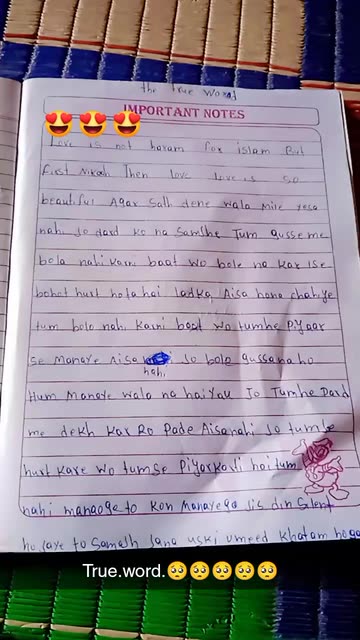 the true word
IMPORTANT NOTES
😍😍😍
Love is not haram for islam But
first Nikah Then love love is so
beautiful Agar Sath dene wala mile yesa
nahi Jo dard ko na Samjhe Tum gusse me
bola nahi karni baat wo bole na kar ise
bohot hurt hota hai ladka, Aisa hona chahiye
tum bolo nahi Karni baat wo tumhe Piyaar
se Manaye Aisa nahi Jo bole gussa na ho
Hum Manaye wala na hai You Jo Tumhe Dard
me dekh kar Ro Pade Aisa nahi Jo tumhe
hurt kare wo tumse Piyar karti hai tum
nahi manaoge to kon Manayega Jis din Silent
ho jaye to Samajh Jana uski umeed khatam
True.word.🥺🥺🥺🥺🥺